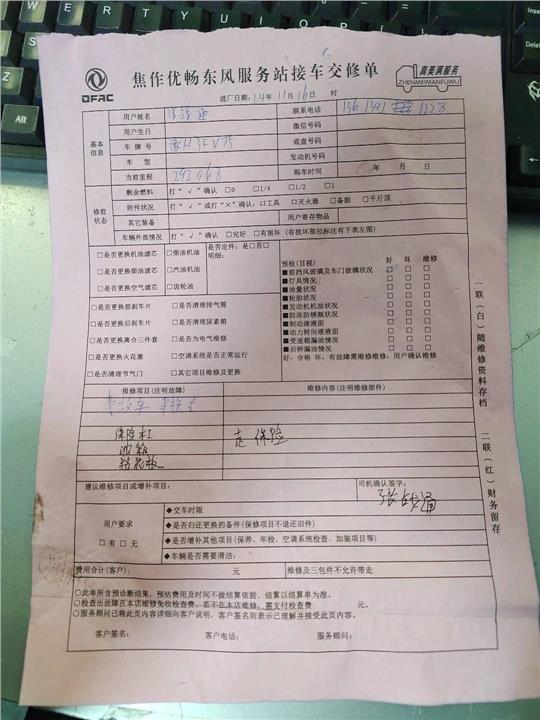 DFAC
焦作优畅东风服务站接车交修单
真美满服务
ZHENMEIMANFUWU
进厂日期:24年11月16日 时
基本信息
用户姓名 联系电话
用户生日 微信号码
车牌号 底盘号码
车型 发动机号码
当前里程 292068 购车时间 年 月 日
修前状况
剩余燃料 打“√”确认 □0 □1/4 □1/2 □1
附件状况 打“√”或打“×”确认:□工具 □灭火器 □备胎 □千斤顶
其它装备 用户寄存物品
车辆外部情况 打“√”确认 □完好 □有损坏(有损坏部位标注有下表左图)
□是否更换机油滤芯 □柴油机油 是否定件:是□否□
□是否更换柴油滤芯 □汽油机油 明细:
□是否更换空气滤芯 □齿轮油
□是否更换前刹车片 □是否清理排气筒
□是否更换后刹车片 □是否清理尿素箱
□是否更换离合三件套 □是否为电气维修
□是否更换火花塞 □空调系统是否正常运行
□是否清理节气门 □其它项目维修及更换
预检(目视) 好 坏 维修
■前挡风玻璃及车门玻璃状况 □ □ □
■灯具情况 □ □ □
■油量状况 □ □ □
■轮胎状况 □ □ □
■发动机机油状况 □ □ □
■防冻防锈瓶状况 □ □ □
■制动液液面 □ □ □
■动力转向液液面 □ □ □
■变速箱漏油情况 □ □ □
■后桥漏油情况 □ □ □
好:合格 坏:有故障需维修维修:用户确认维修
报修项目(注明故障) 维修内容(注明维修部件)
事故车
保险杠 走保险
油箱
建议维修项目或增补项目: 司机确认签字:
张战通
用户要求
□有□无
◆交车时限
◆是否归还更换的备件(保修项目不退还旧件)
◆是否增补其他项目(保养、年检、空调系统检查、加装项目等)
◆车辆是否需要清洁:
费用合计(客户): 元 维修及三包件不允许带走
○此单所含预诊断结果,预估费用及时间不做结算依据,结算以结算单为准。
○检查出故障在本店维修免收检查费,若不在本店维修,需支付检查费 元。
○服务顾问已将此页内容详细向客户说明,客户签名则表示已理解并接受此页内容。
客户签名: 客户电话: 服务顾问:
一联(白)随维修资料存档
二联(红)财务留存